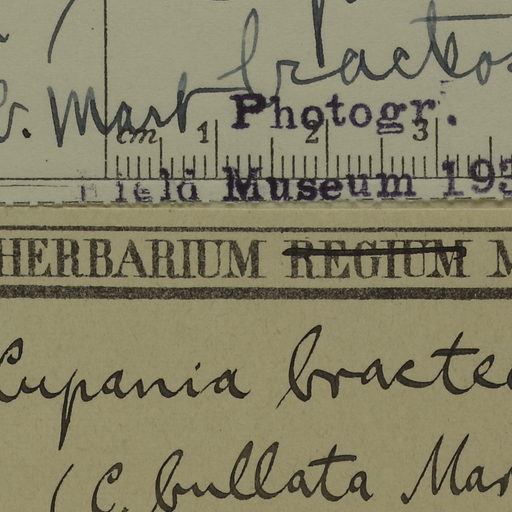 bracteos
v. Mart
Photogr.
cm 1 2 3
Field Museum 193
HERBARIUM REGIUM M
Cupania bracteo
(C. bullata Mar